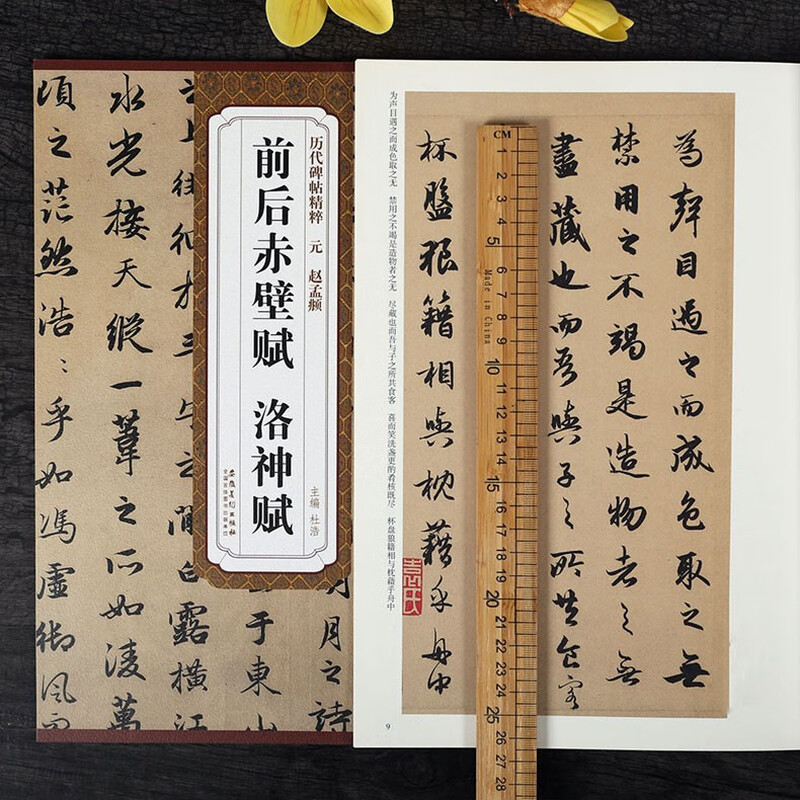 历代碑帖精粹 元 赵孟頫
前后赤壁赋 洛神赋
主编 杜浩
安徽美术出版社
月之詩
于東山
水光接天縱一葦之所如凌萬
頃之茫然浩浩乎如馮虛御風而
為聲目遇之而成色取之無
禁用之不竭是造物者之無
盡藏也而吾與子之所共食客
杯盤狼籍相與枕藉乎舟中
为声目遇之而成色取之无 禁用之不竭是造物者之无 尽藏也而吾与子之所共食客 喜而笑洗盏更酌肴核既尽 杯盘狼籍相与枕藉乎舟中
9
CM
1 2 3 4 5 6 7 8 9 10 11 12 13 14 15 16 17 18 19 20 21 22 23 24 25 26 27 28
Made in China